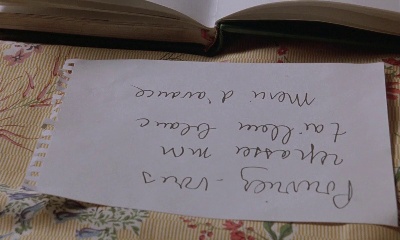 Pouvriez-vous
repasser mon
tailleur blanc
Merci d'avance